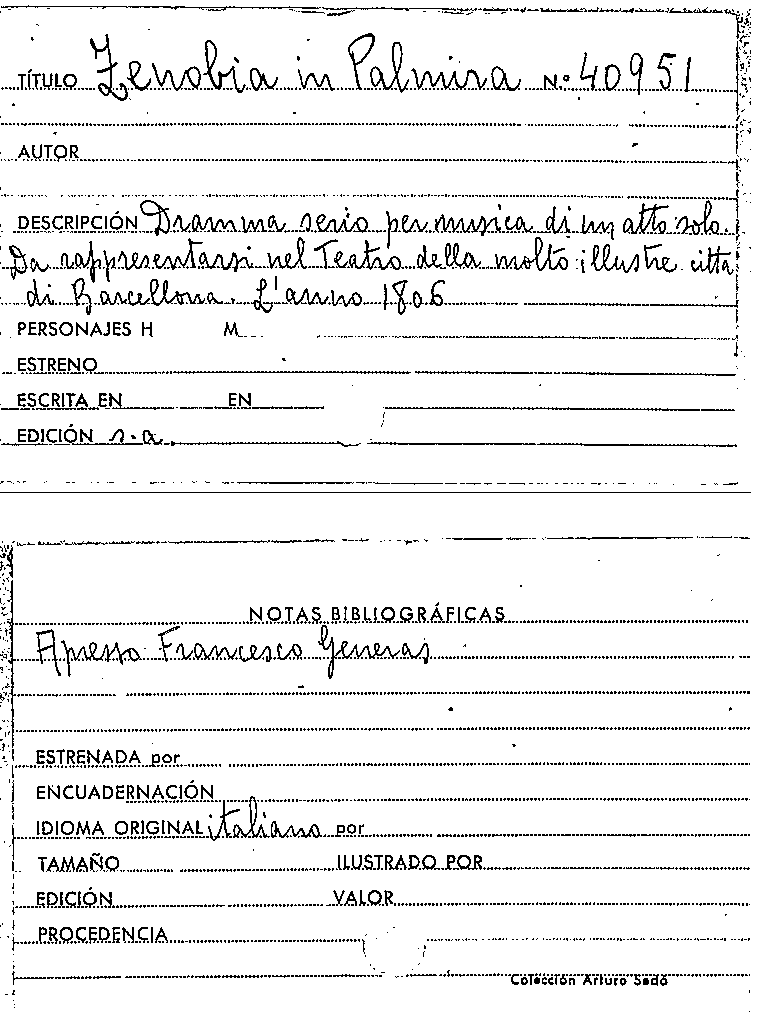 TÍTULO Zenobia in Palmira N.º 40951
AUTOR
DESCRIPCIÓN Dramma serio per musica di un atto solo.
Da rappresentarsi nel Teatro della molto illustre città
di Barcellona. L'anno 1806
PERSONAJES H M
ESTRENO
ESCRITA EN EN
EDICIÓN s.a.
NOTAS BIBLIOGRÁFICAS
Apresso Francesco Generas
ESTRENADA por
ENCUADERNACIÓN
IDIOMA ORIGINAL italiano por
TAMAÑO ILUSTRADO POR
EDICIÓN VALOR
PROCEDENCIA
Colección Arturo Sedó